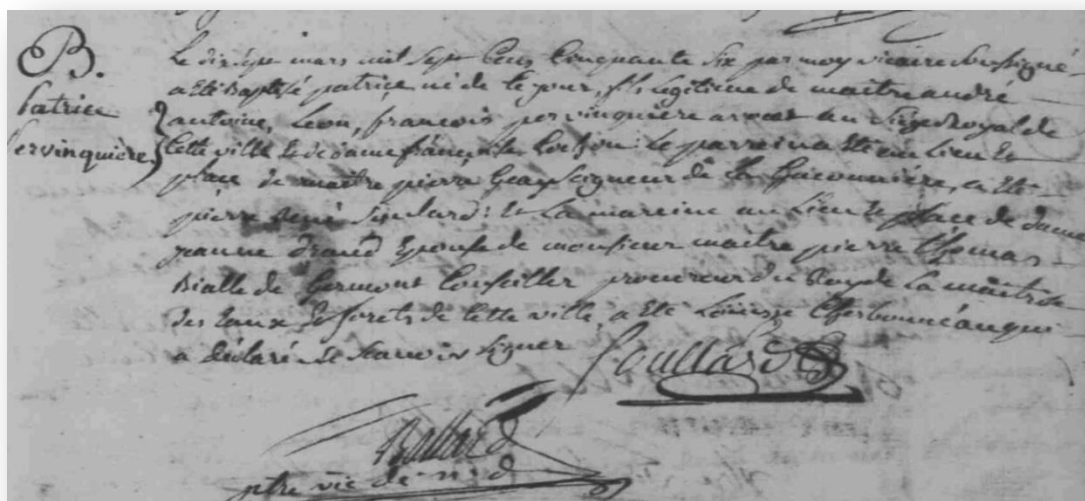 B.
patrice
pervinquière
Le dix sept mars mil sept cens cinquante six par moy vicaire soussigné
a été baptisé patrice, né de ce jour, fils légitime de maitre andré
antoine, Leon, francois pervinquière avocat au siège Royal de
cette ville et de dame françoise : Le parrein a été au lieu et
place de maitre pierre seigneur de la, a été
pierre rené : et La mareine au Lieu et place de dame
jeanne épouse de monsieur maitre pierre thomas
Bialle de Germont Conseiller procureur du Roy de La maitrise
des Eaux et forets de cette ville, a été qui
a déclaré ne scavoir signer
ptre vic de n d